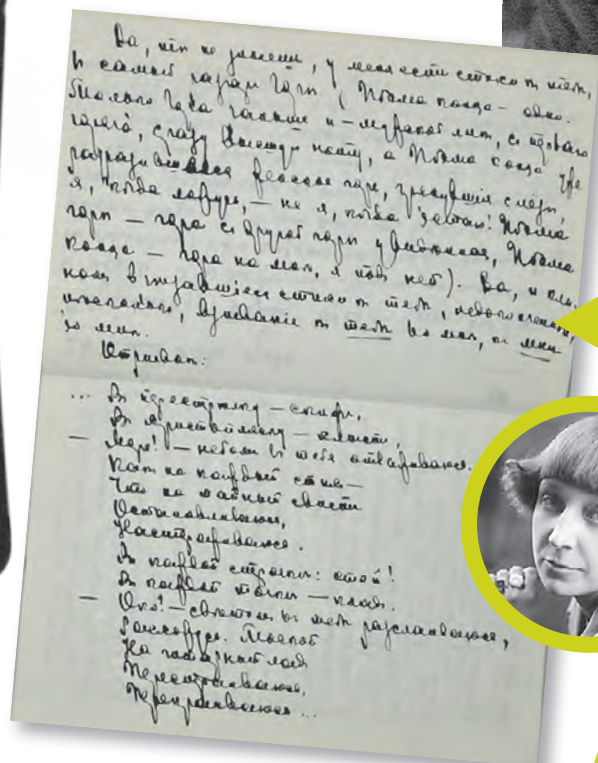 Да, ты не знаешь, у меня есть стихи к тебе,
в самый разгар Горы (Поэма конца – одно.
Только Гора раньше и – мужской лик, с первого
горяча, сразу высшую ноту, а Поэма Конца уже
разразившееся женское горе, грянувшие слезы,
я, когда ложусь, – не я, когда встаю! Поэма
горы – гора с другой горы увиденная, Поэма
Конца – гора на мне, я под ней). Да, и кли-
ном врезавшиеся стихи к тебе, недоконченные,
несколько, взываніе к тебе во мне, к мне
во мне.
Отрывок:
... В перестрелку – скифы,
В христопляску – хлысты,
– Море! – небом в тебя отваживаюсь.
Как на каждый стих –
Что на тайный свист
Останавливаюсь,
Настораживаюсь.
В каждой строчке: стой!
В каждой точке – клад.
– Око! – светом в тебе расслаиваюсь,
Расхожусь. Тоской
На гитарный лад
Перестраиваюсь,
Перекраиваюсь...